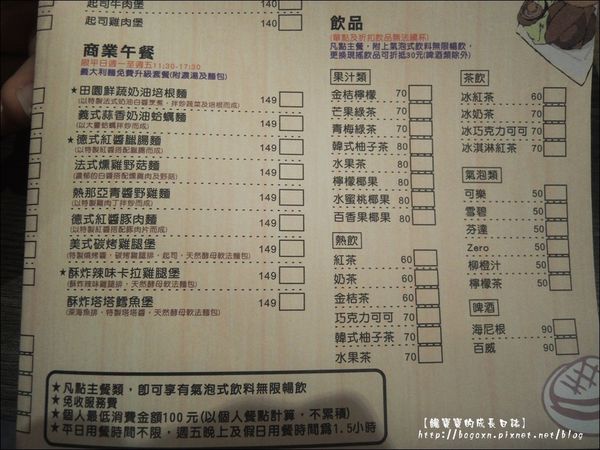 起司牛肉堡 140
起司雞肉堡 140
商業午餐
限平日週一至週五11:30-17:30
義大利麵免費升級套餐(附濃湯及麵包)
★田園鮮蔬奶油培根麵 149
(以特製法式奶油白醬烹煮,拌炒蔬菜及培根而成)
義式蒜香奶油蛤蠣麵 149
(以大量蛤蠣拌炒而成)
★德式紅醬臘腸麵 149
(以特製紅醬搭配臘腸而成)
法式燻雞野菇麵 149
(濃郁的白醬搭配燻雞肉及野菇)
熱那亞青醬野雞麵 149
(以特製雞肉丁拌炒而成)
德式紅醬豚肉麵 149
(以特製紅醬搭配豚肉片而成)
美式碳烤雞腿堡 149
(特製燒烤醬,碳烤雞腿排,起司,天然酵母軟法麵包)
★酥炸辣味卡拉雞腿堡 149
(酥炸辣味雞腿排,天然酵母軟法麵包)
酥炸塔塔鱈魚堡 149
(深海魚排,特製塔塔醬,天然酵母軟法麵包)
飲品
(單點及折扣飲品無法續杯)
凡點主餐,附上氣泡式飲料無限暢飲,
更換現搖飲品可折抵30元(啤酒類除外)
果汁類
金桔檸檬 70
芒果綠茶 70
青梅綠茶 70
韓式柚子茶 80
水果茶 80
檸檬椰果 80
水蜜桃椰果 80
百香果椰果 80
熱飲
紅茶 60
奶茶 60
金桔茶 60
巧克力可可 70
韓式柚子茶 70
水果茶 70
茶飲
冰紅茶 60
冰奶茶 60
冰巧克力可可 70
冰淇淋紅茶 70
氣泡類
可樂 50
雪碧 50
芬達 50
Zero 50
柳橙汁 50
檸檬茶 50
啤酒
海尼根 90
百威 90
★凡點主餐類,即可享有氣泡式飲料無限暢飲
★免收服務費
★個人最低消費金額100元(以個人餐點計算,不累積)
★平日用餐時間不限,週五晚上及假日用餐時間為1.5小時
寶寶的成長日誌】
http://bogoxn.pixnet.net/blog